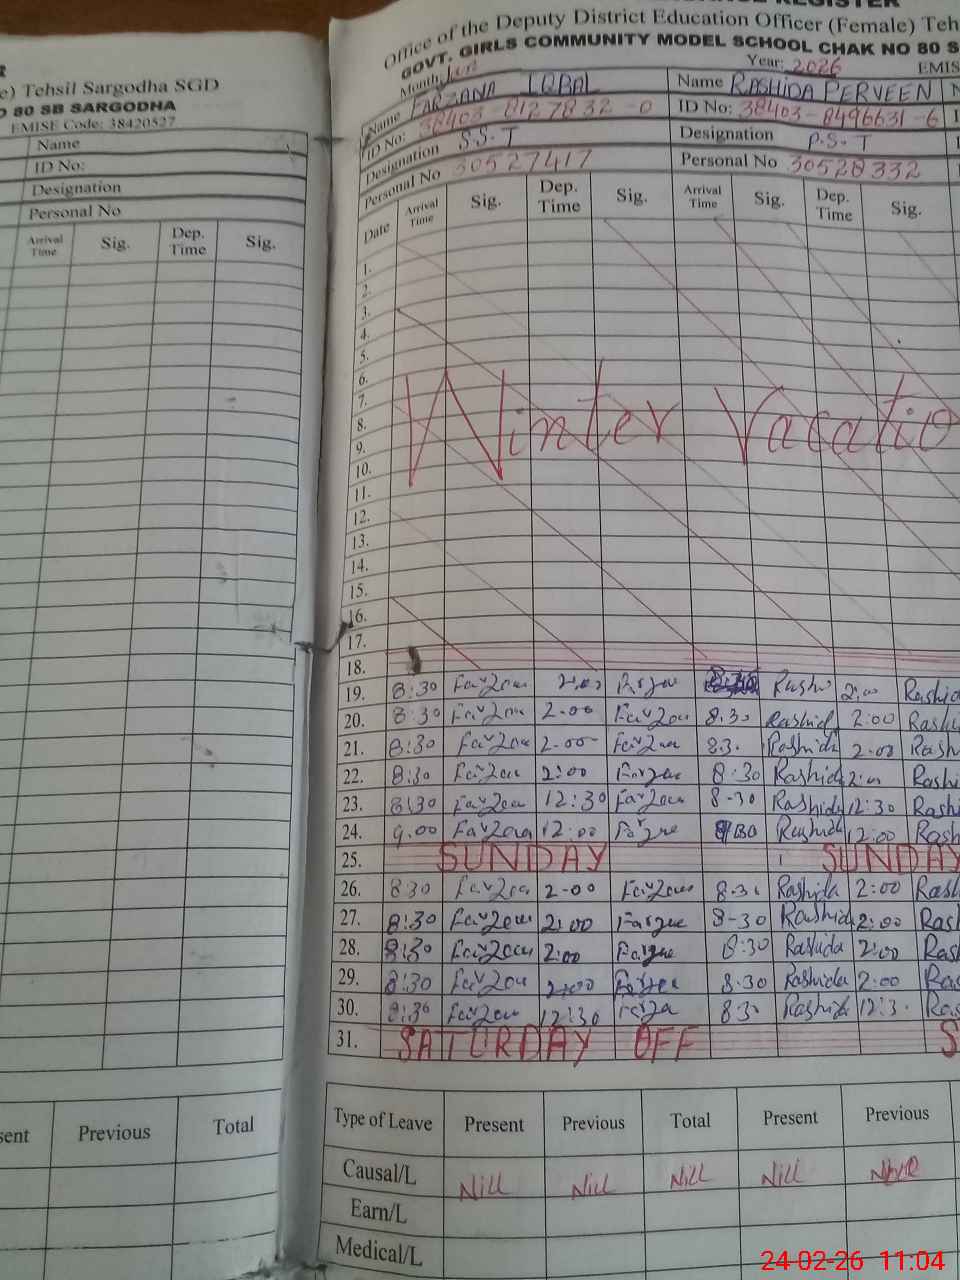 e) Tehsil Sargodha SGD
O 80 SB SARGODHA
EMISE Code: 38420527
Name
ID No:
Designation
Personal No
Arrival Time Sig. Dep. Time Sig.
sent Previous Total
Office of the Deputy District Education Officer (Female) Teh
GOVT. GIRLS COMMUNITY MODEL SCHOOL CHAK NO 80 S
Month Year: 2026 EMIS
Name FARZANA IQBAL Name RASHIDA PERVEEN
ID No: 38403-8127832-0 ID No: 38403-8496631-6
Designation S.S.T Designation P.S.T
Personal No 30527417 Personal No 30528332
Date Arrival Time Sig. Dep. Time Sig. Arrival Time Sig. Dep. Time Sig.
1.
2.
3.
4.
5.
6.
7.
Winter Vacatio
8.
9.
10.
11.
12.
13.
14.
15.
16.
17.
18.
19. 8:30 2:00 Rasho 2:00 Rashid
20. 8:30 2.00 8.30 Rashid 2:00 Rashi
21. 8:30 2.00 8.3. Rashida 2.00 Rash
22. 8:30 2:00 8.30 Rashida 2:00 Rashi
23. 8:30 12:30 8-30 Rashida 12:30 Rash
24. 9.00 12:00 Rashida 12:00 Rash
25. SUNDAY SUNDAY
26. 830 2-00 8.30 Rashida 2:00 Rash
27. 8:30 2:00 8-30 Rashida 2:00 Ras
28. 8:30 2:00 8:30 Rashida 2:00 Ras
29. 8:30 2:00 8.30 Rashida 2:00 Ras
30. 8:30 12:30 830 Rashida 12:3. Ras
31. SATURDAY OFF S
Type of Leave Present Previous Total Present Previous
Causal/L Nill Nill Nill Nill
Earn/L
Medical/L
24-02-26 11:04